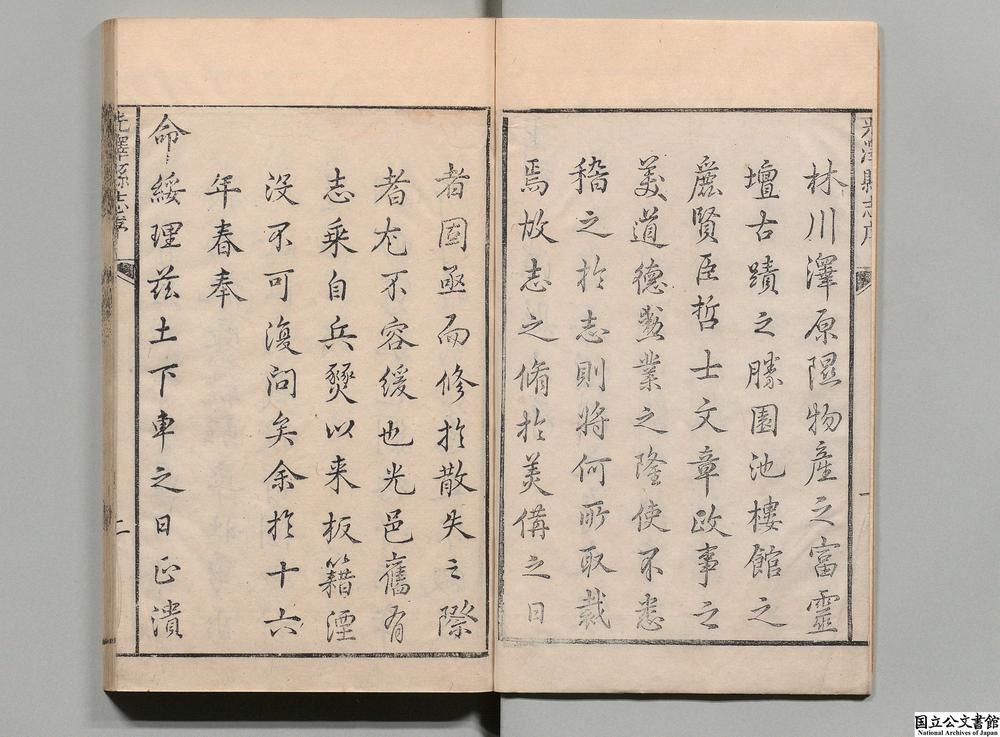 光澤縣志序
林川澤原隰物產之富靈
壇古蹟之勝園池樓館之
麗賢臣哲士文章政事之
美道德勲業之隆使不悉
稽之扵志則將何所取裁
焉故志之脩扵美僃之日
者固亟而修扵散失之際
者尤不容緩也光邑舊有
志乘自兵燹以来板籍湮
没不可復问矣余扵十六
年春奉
命綏理兹土下車之日正潰
光澤縣志序
二
国立公文書館
National Archives of Japan